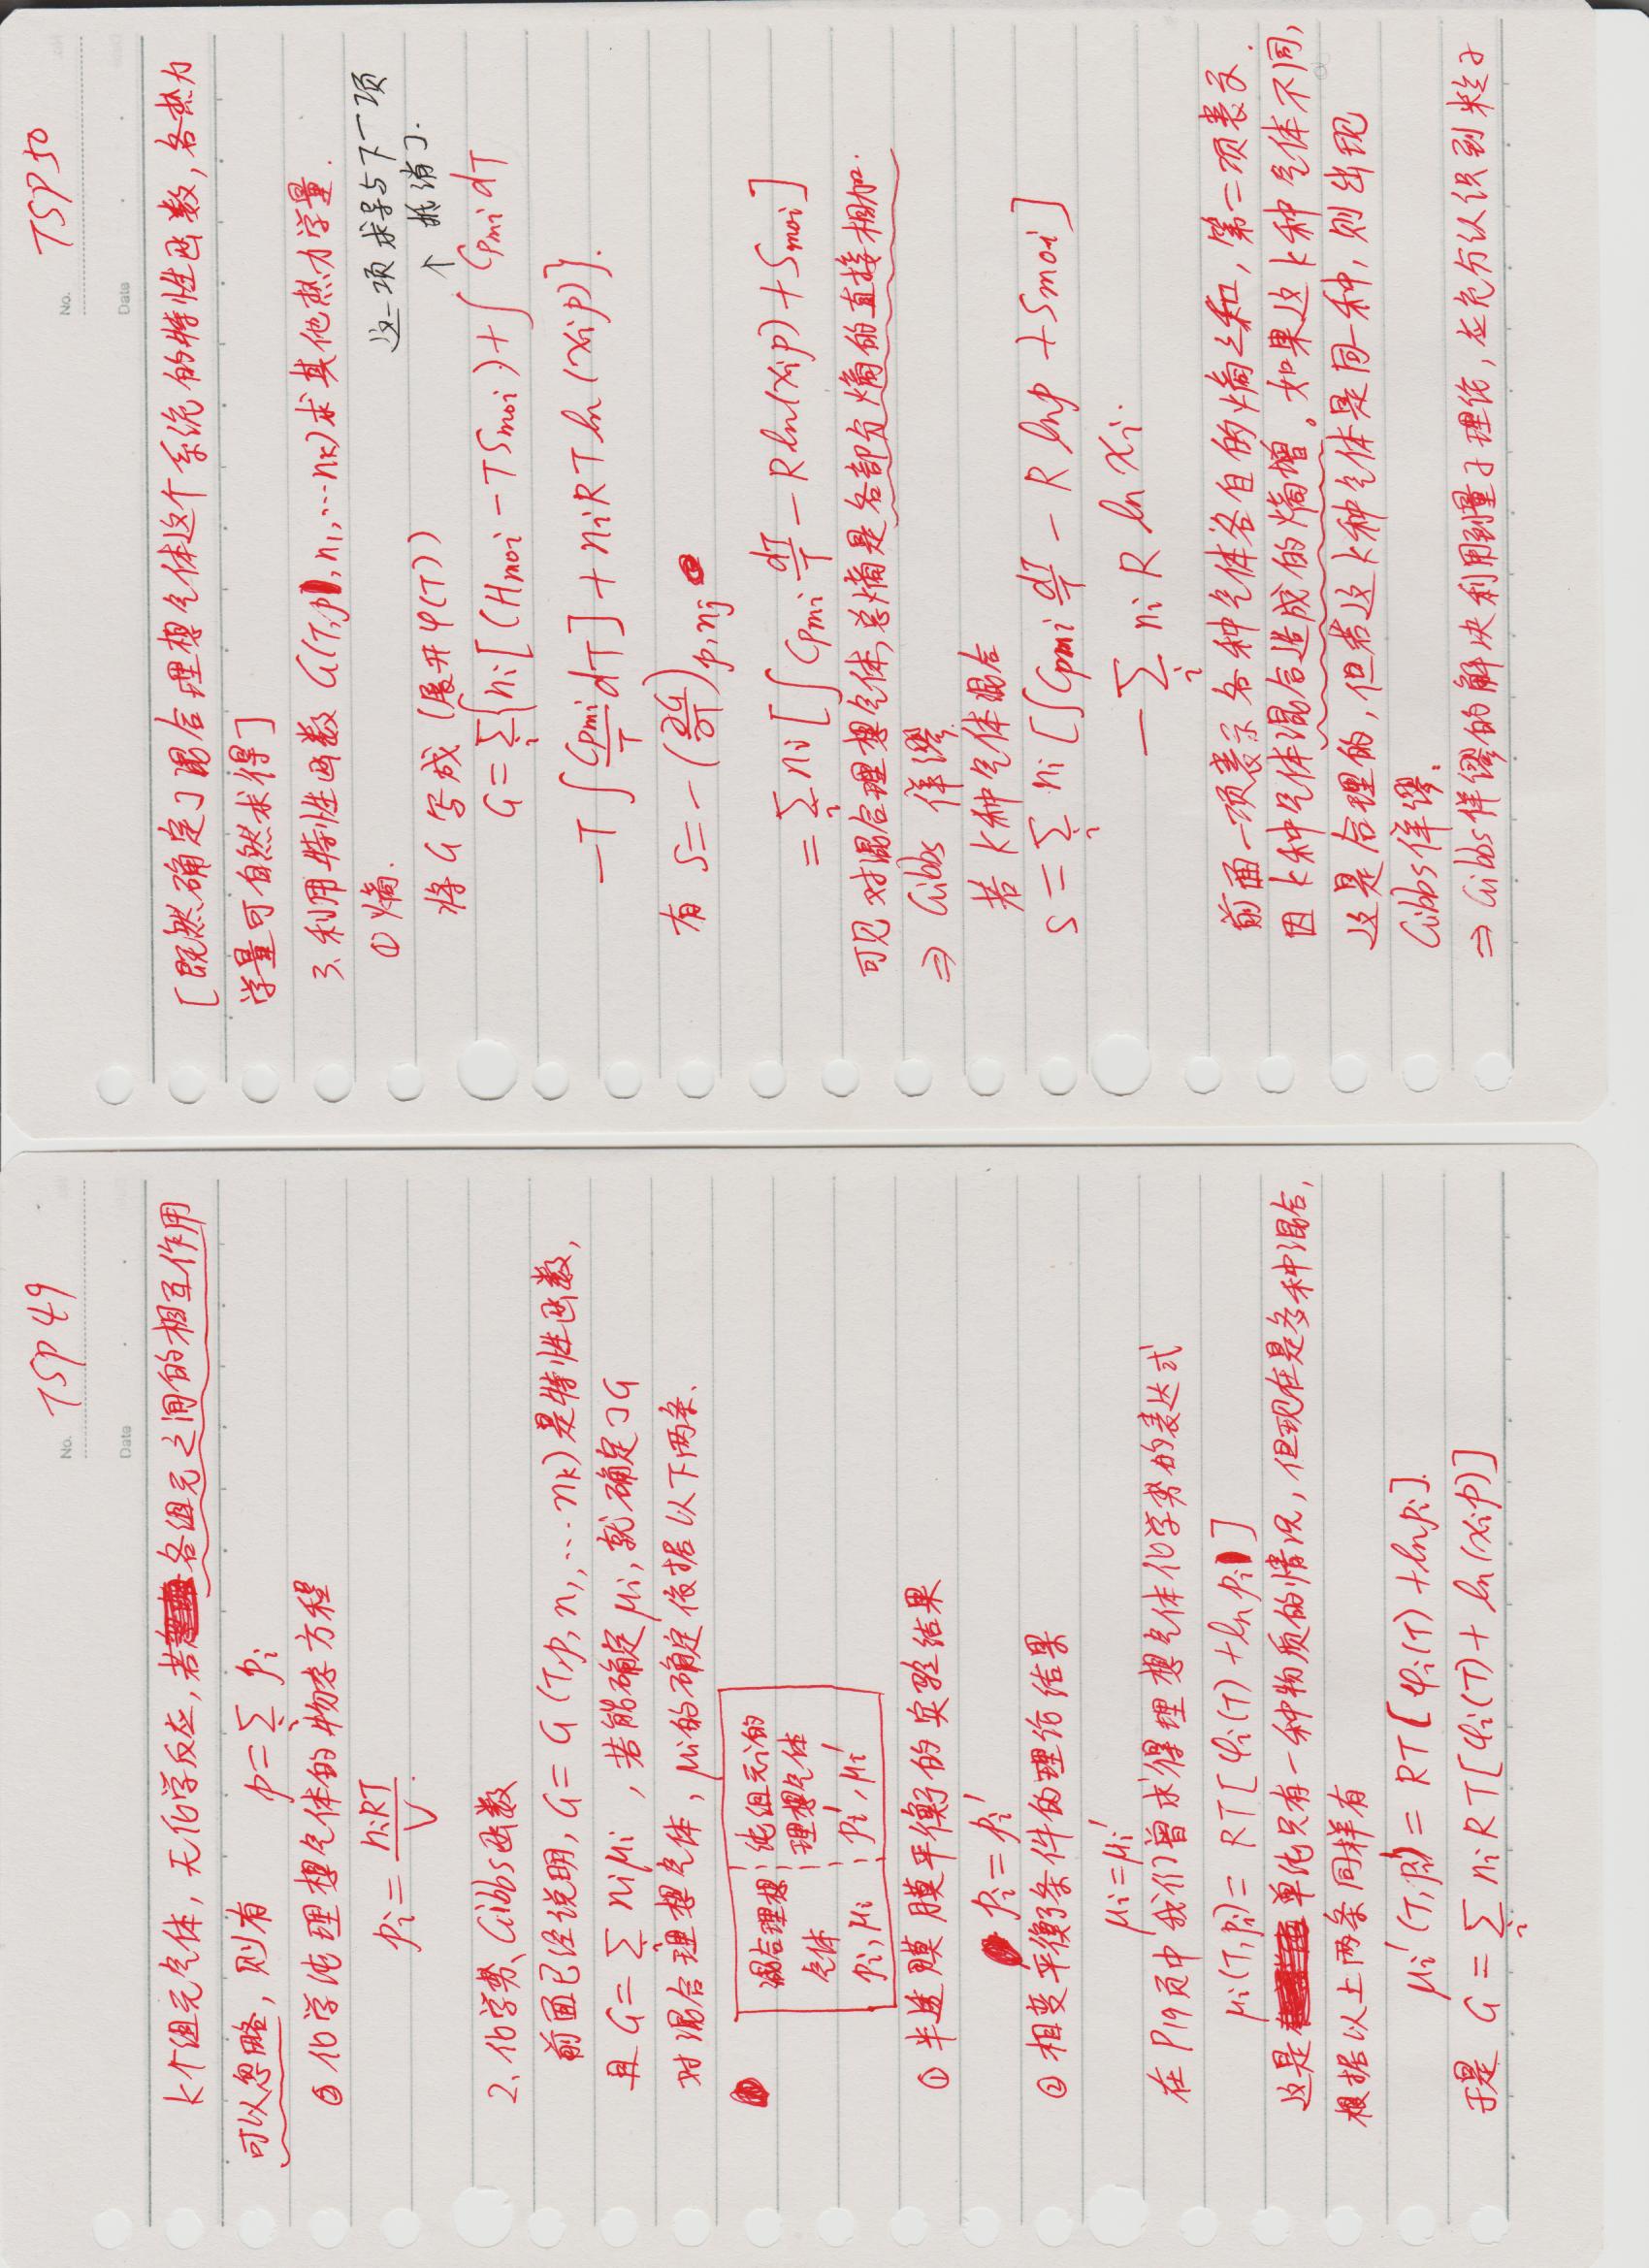 No. TSP 49
Date
k个组元气体，无化学反应，若各组元之间的相互作用
可以忽略，则有 p=∑_i p_i
② 化学纯理想气体的物态方程
p_i = n_iRT/V.
2、化学势、Gibbs函数
前面已经说明，G = G (T,p, n_1, … n_k) 是特性函数，
且 G=∑_i n_iμ_i ，若能确定μ_i，就确定了G
对混合理想气体，μ_i的确定依据以下两条.
混合理想
气体
p_i, μ_i
纯组元i的
理想气体
p_i′, μ_i′
① 半透膜膜平衡的实验结果
p_i = p_i′
② 相变平衡条件的理论结果
μ_i = μ_i′
在P19页中我们曾求得理想气体化学势的表达式
μ_i(T,p_i) = RT[φ_i(T) + ln p_i]
这是单纯只有一种物质的情况，但现在是多种混合，
根据以上两条同样有
μ_i′(T,p_i′) = RT[φ_i(T) + ln p_i].
于是 G = ∑_i n_i RT[φ_i(T) + ln(x_i p)]
No. TSP 50
Date
[既然确定了混合理想气体这个系统的特性函数，各热力
学量可自然求得]
3、利用特性函数 G(T,p, n_1, … n_k) 求其他热力学量.
① 熵.
这一项求导与下一项
↑ 抵消了.
将G写成 (展开φ(T))
G = ∑_i {n_i [ (H_m0i − TS_m0i) + ∫ C_pmi dT
− T ∫ C_pmi/T dT] + n_i RT ln (x_i p)}.
有 S = − (∂G/∂T)_p,n_j
= ∑_i n_i [∫ C_pmi dT/T − R ln(x_i p) + S_m0i]
可见对混合理想气体，总熵是各部分熵的直接相加.
⇒ Gibbs 佯谬
若k种气体混合
S = ∑_i n_i [∫ C_pmi dT/T − R ln p + S_m0i]
− ∑_i n_i R ln x_i.
前面一项表示各种气体各自的熵之和，第二项表示
因k种气体混合造成的熵增。如果这k种气体不同，
这是合理的，但若这k种气体是同一种，则出现
Gibbs佯谬.
⇒ Gibbs佯谬的解决利用到量子理论，应充分认识到粒子